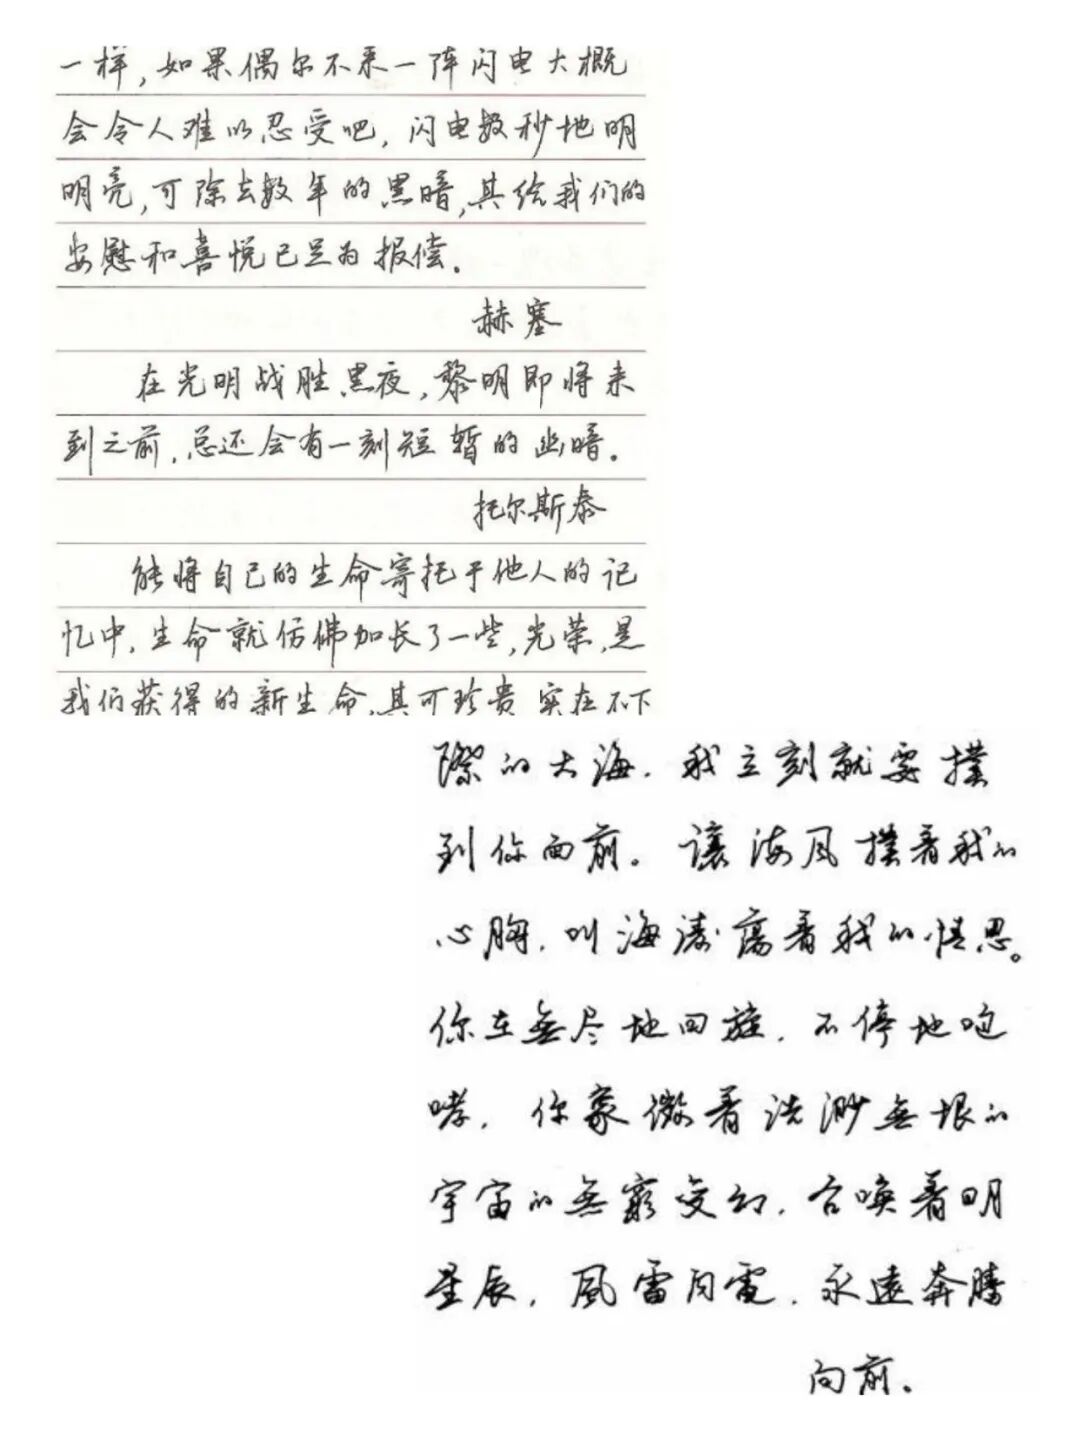 一样，如果偶尔不来一阵闪电大概
会令人难以忍受吧，闪电数秒地明
明亮，可除去数年的黑暗，其给我们的
安慰和喜悦已足为报偿。
赫塞
在光明战胜黑夜，黎明即将来
到之前，总还会有一刻短暂的幽暗。
托尔斯泰
能将自己的生命寄托于他人的记
忆中，生命就仿佛加长了一些，光荣，是
我们获得的新生命，其可珍贵实在不下
际的大海，我立刻就要撲
到你面前。讓海风撲着我的
心胸，叫海涛荡着我的情思。
你在無尽地回旋，不停地咆
哮，你象徵着浩渺無垠的
宇宙的無窮变幻，召唤着日明
星辰，風雷闪電，永遠奔腾
向前。